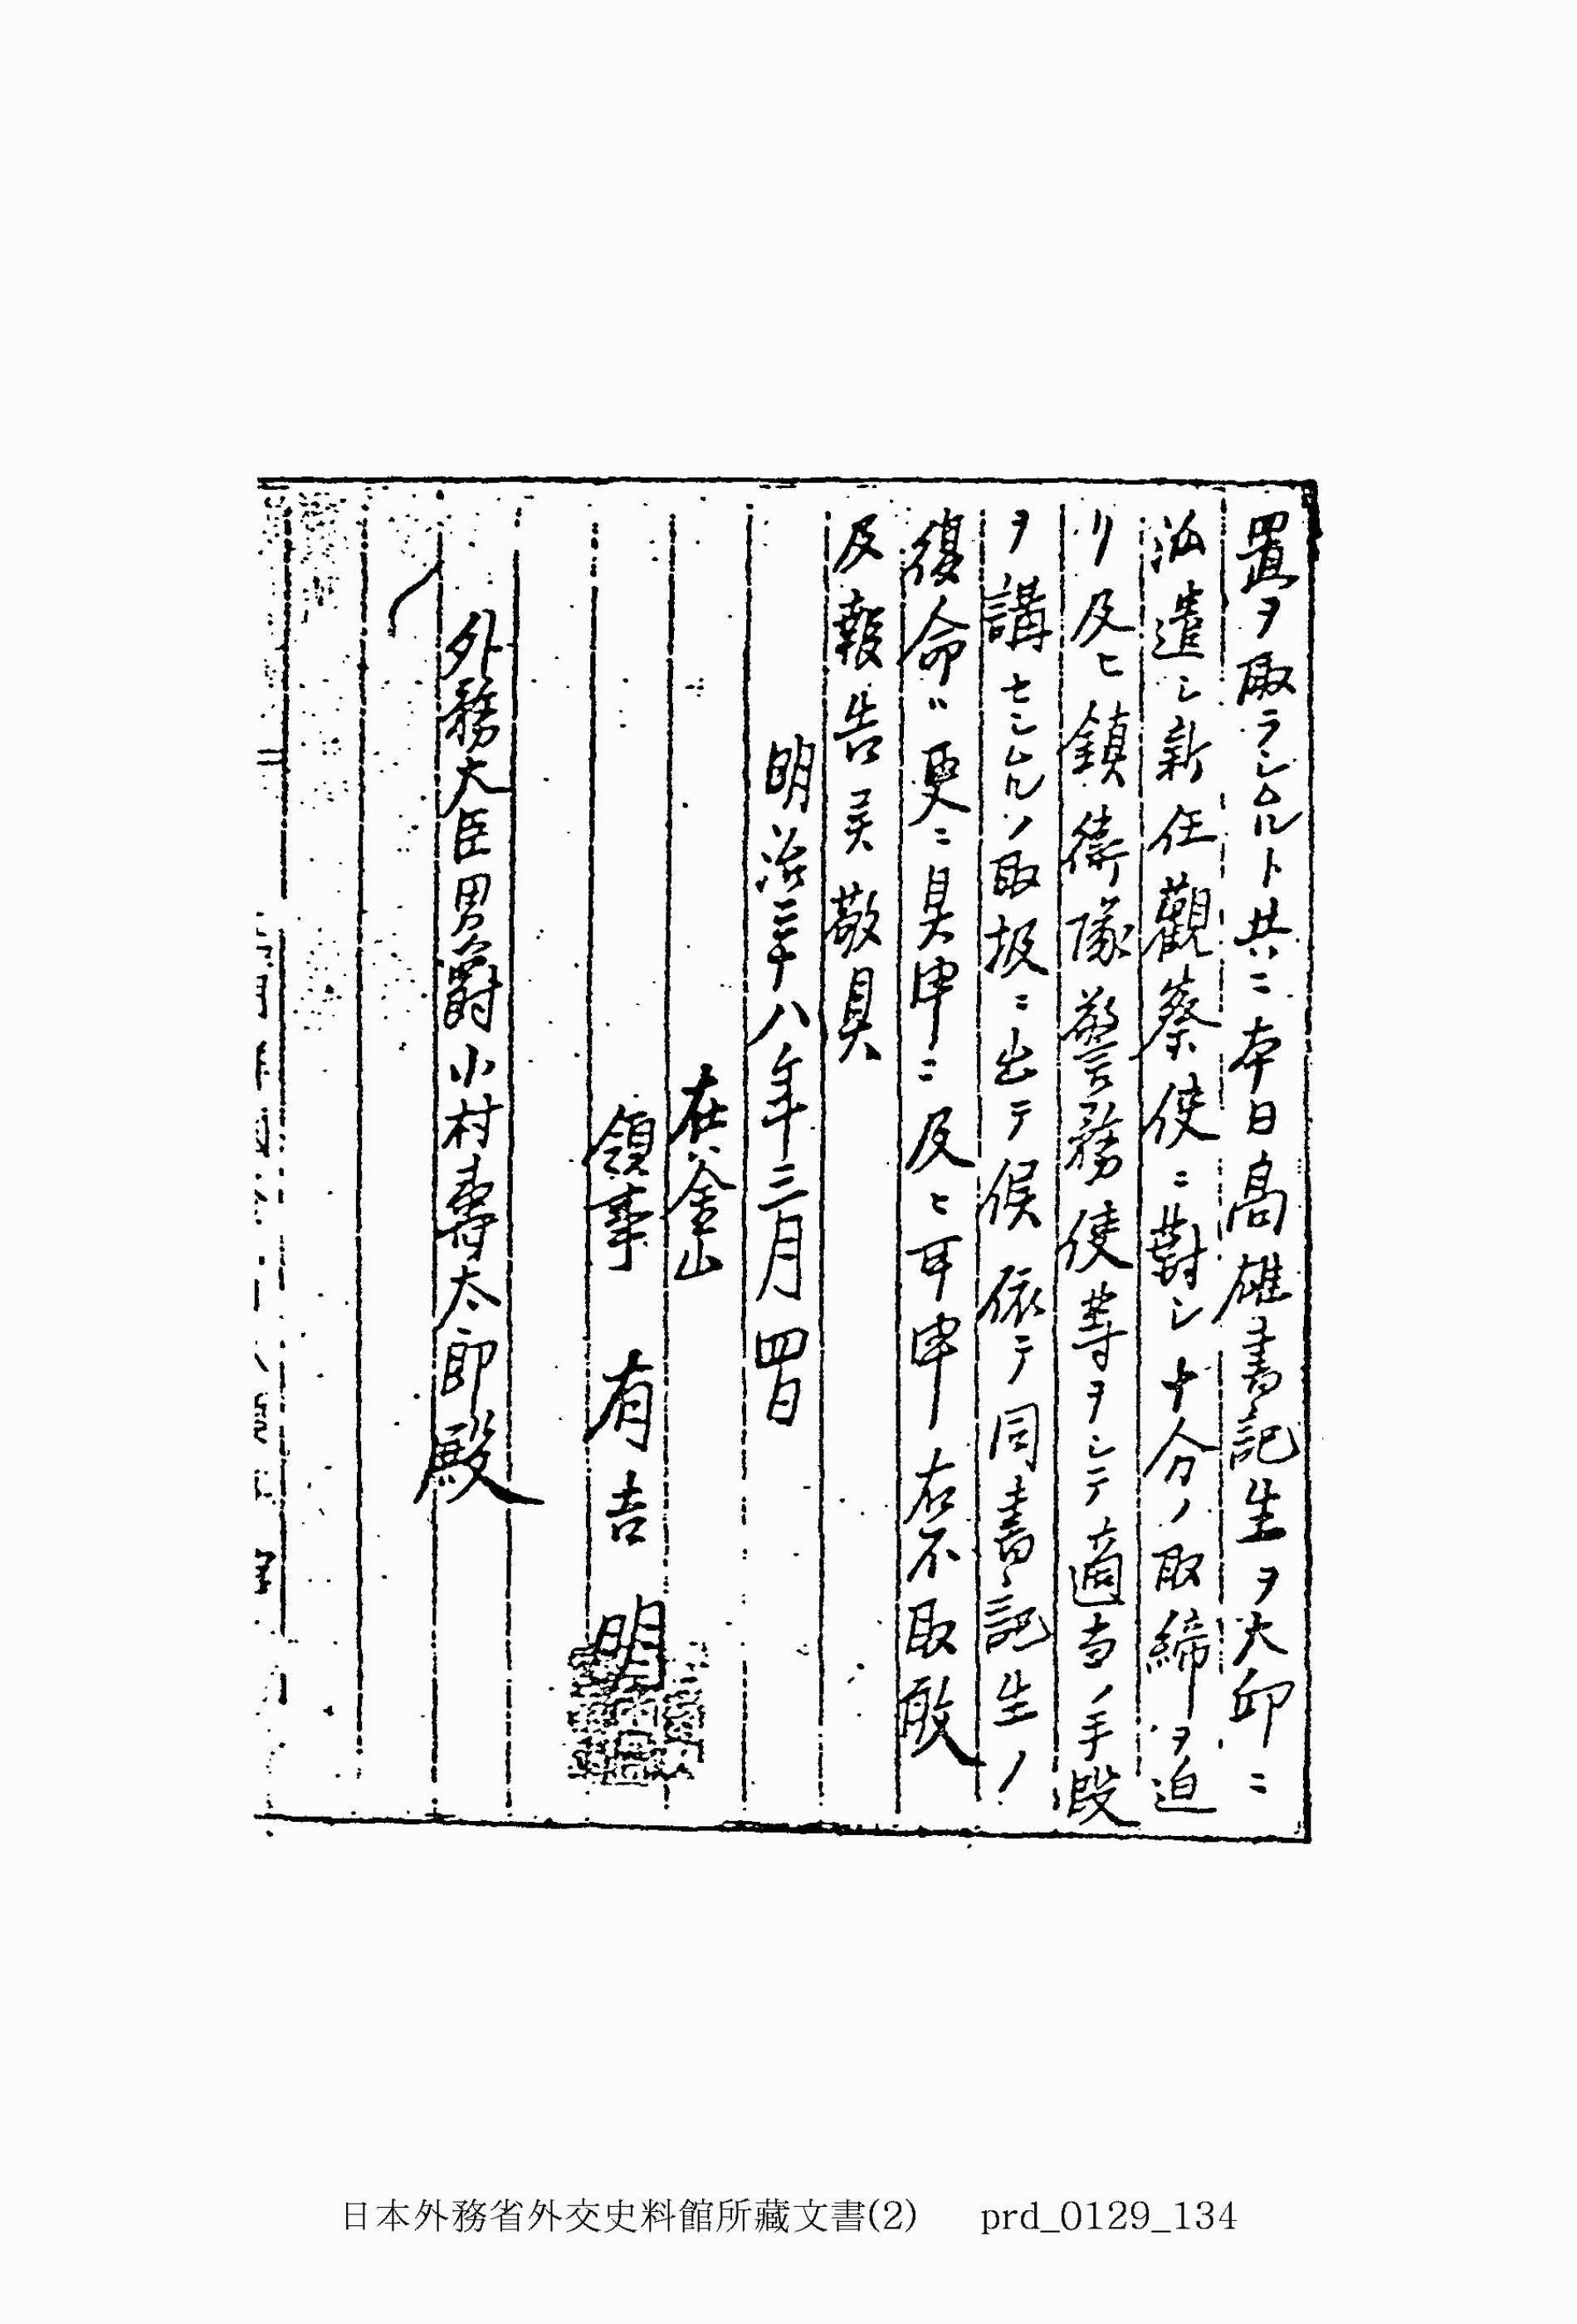 置ヲ取ラシムルト共ニ本日高雄書記生ヲ大邱ニ
派遣シ新任觀察使ニ對シ十分ノ取締ヲ迫
リ及ヒ鎮衛隊警務使等ヲシテ適当ノ手段
ヲ講セシムルノ取扱ニ出テ候依テ同書記生ノ
復命ハ更ニ具申ニ及ヒ可申右不取敢
及報告候敬具
明治三十八年三月四日
在釜山
領事 有吉 明
外務大臣男爵小村壽太郎殿
日本外務省外交史料館所藏文書(2) prd_0129_134